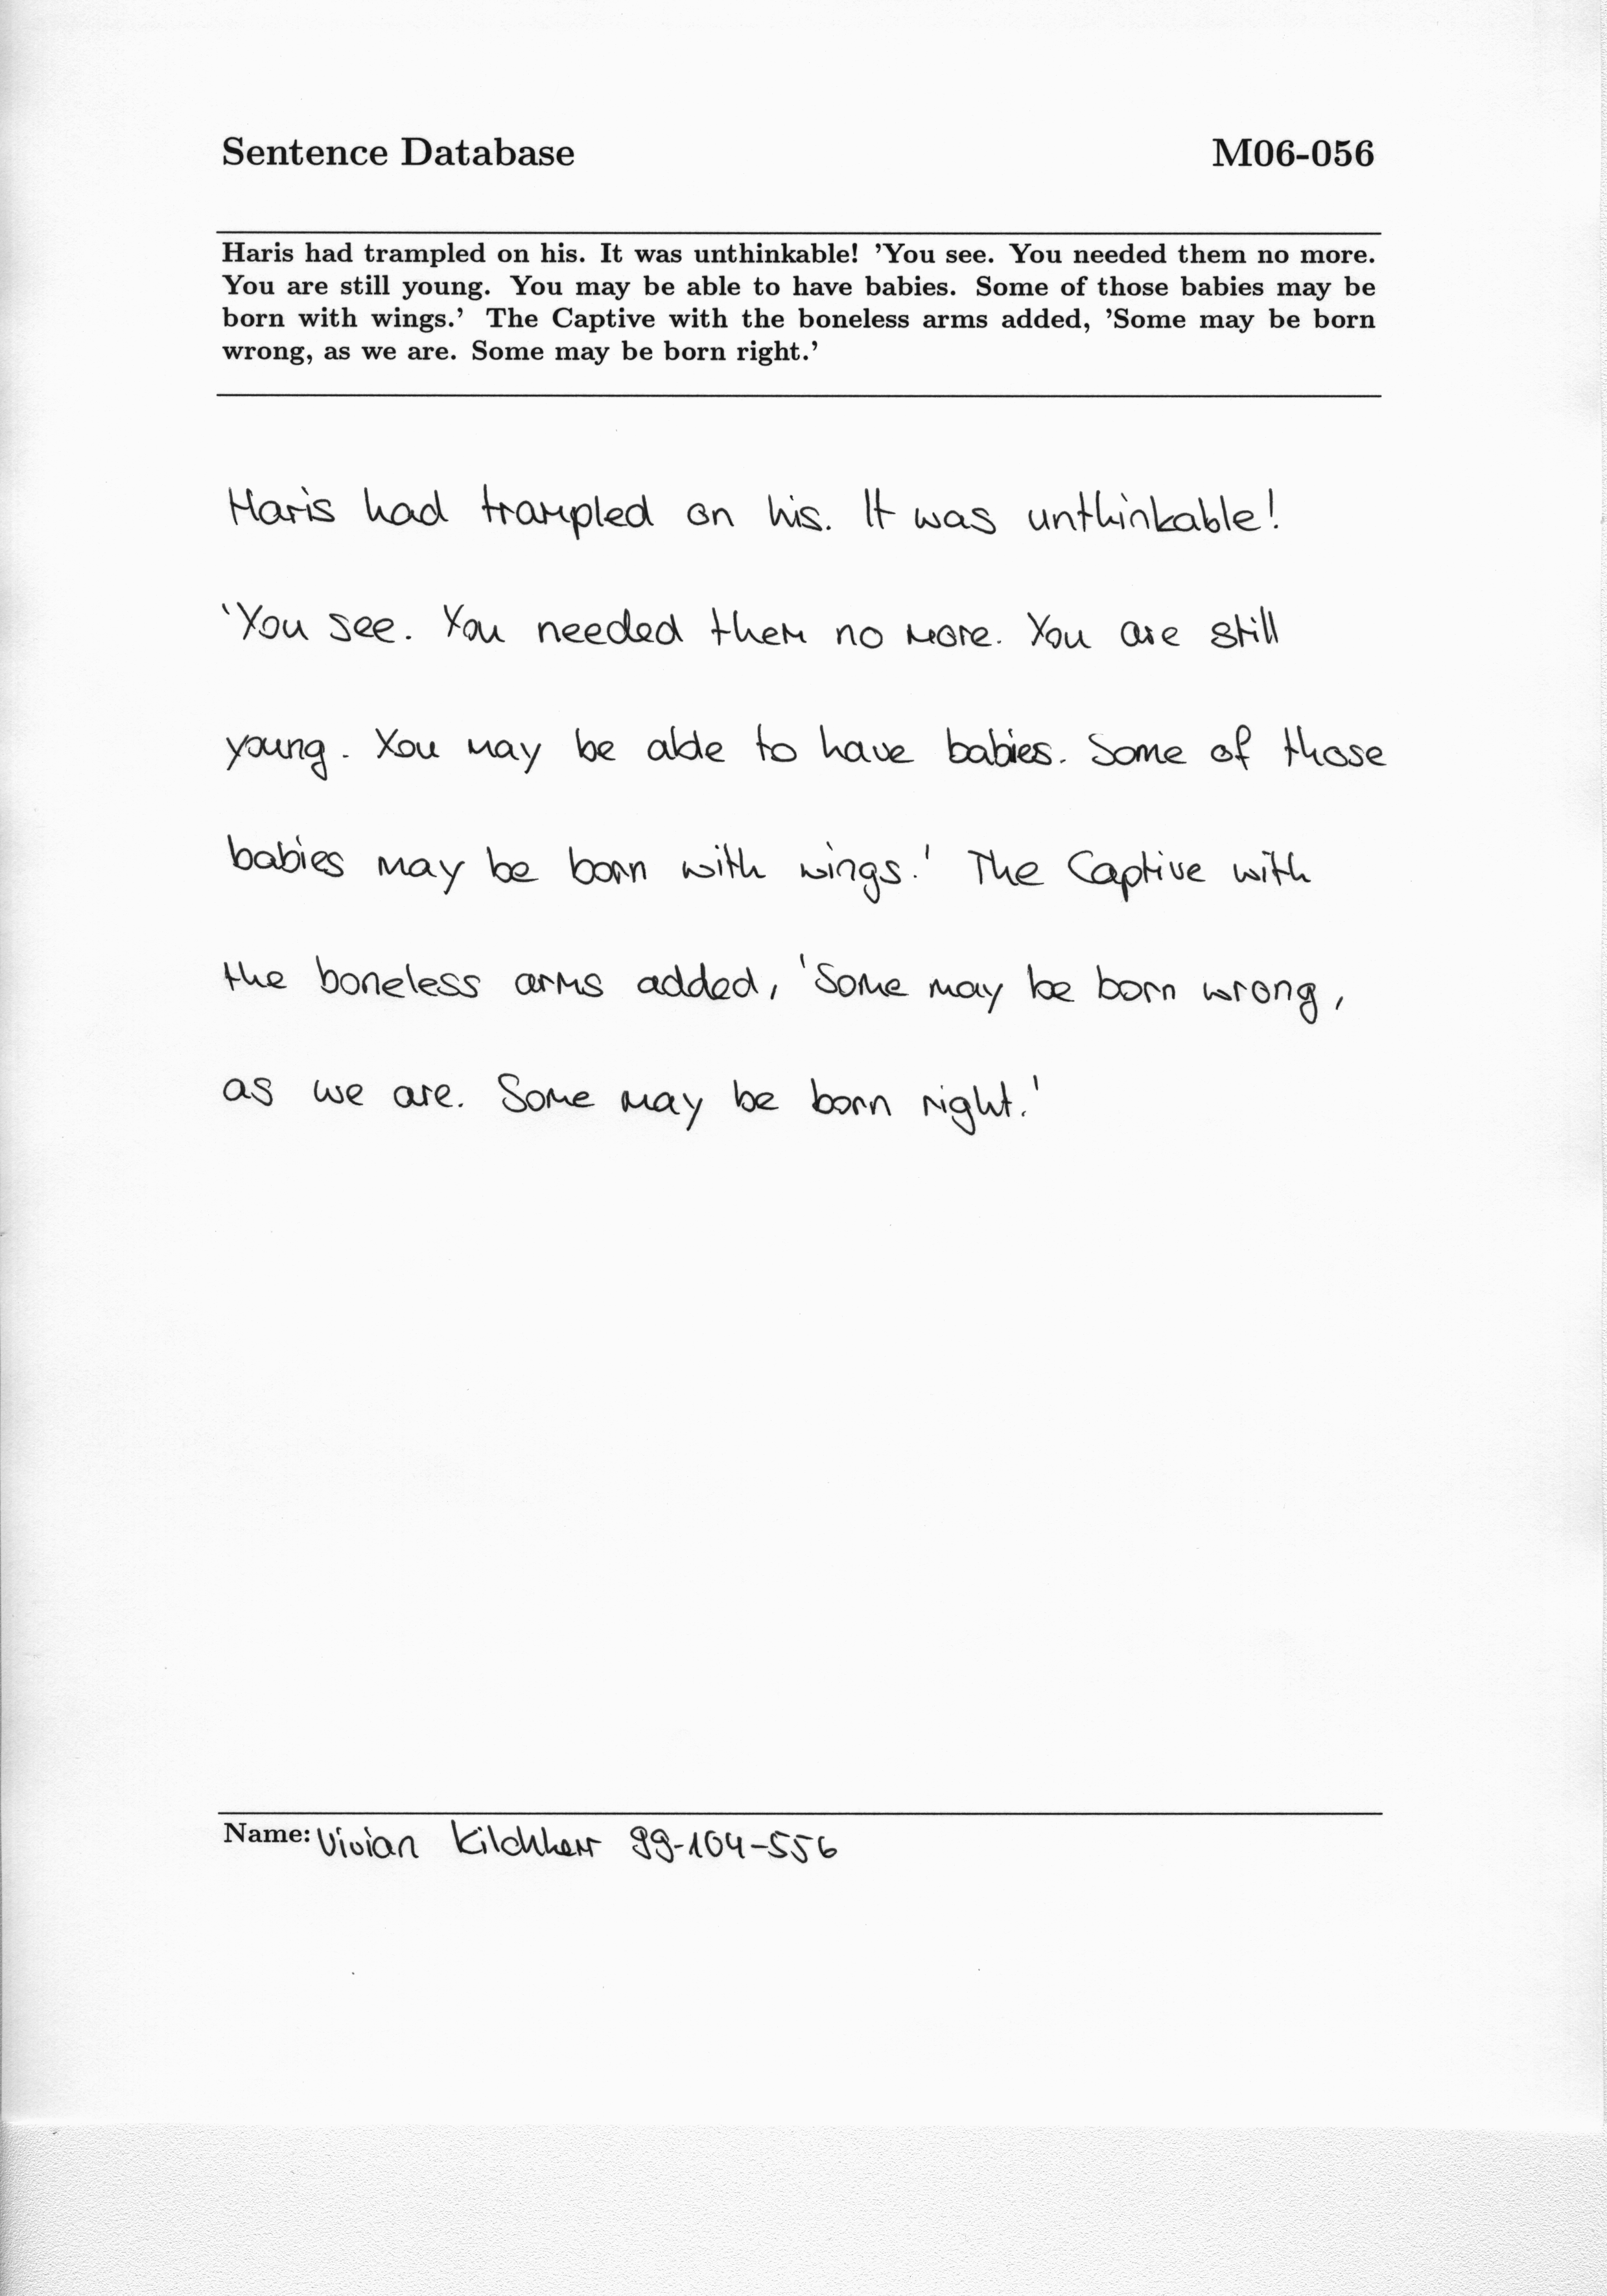 Sentence Database M06-056
Haris had trampled on his. It was unthinkable! 'You see. You needed them no more.
You are still young. You may be able to have babies. Some of those babies may be
born with wings.' The Captive with the boneless arms added, 'Some may be born
wrong, as we are. Some may be born right.'
Haris had trampled on his. It was unthinkable!
'You see. You needed them no more. You are still
young. You may be able to have babies. Some of those
babies may be born with wings.' The Captive with
the boneless arms added, 'Some may be born wrong,
as we are. Some may be born right.'
Name: Vivian Kilchherr 99-104-556